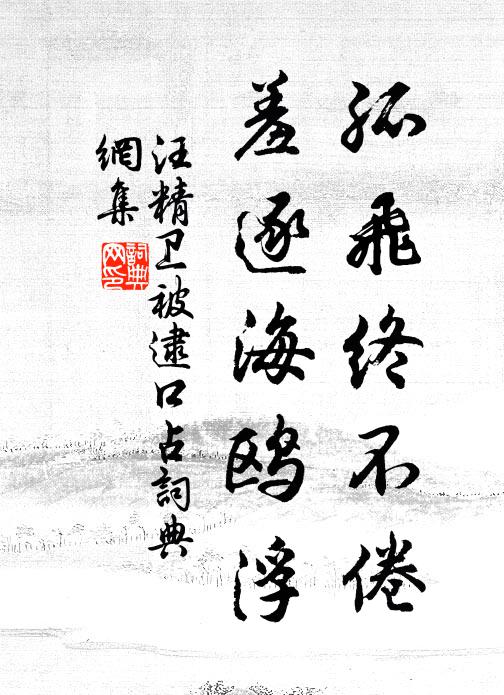 孤飛終不倦
羞逐海鷗浮
汪精卫被逮口占詞典
網集
詞典网印